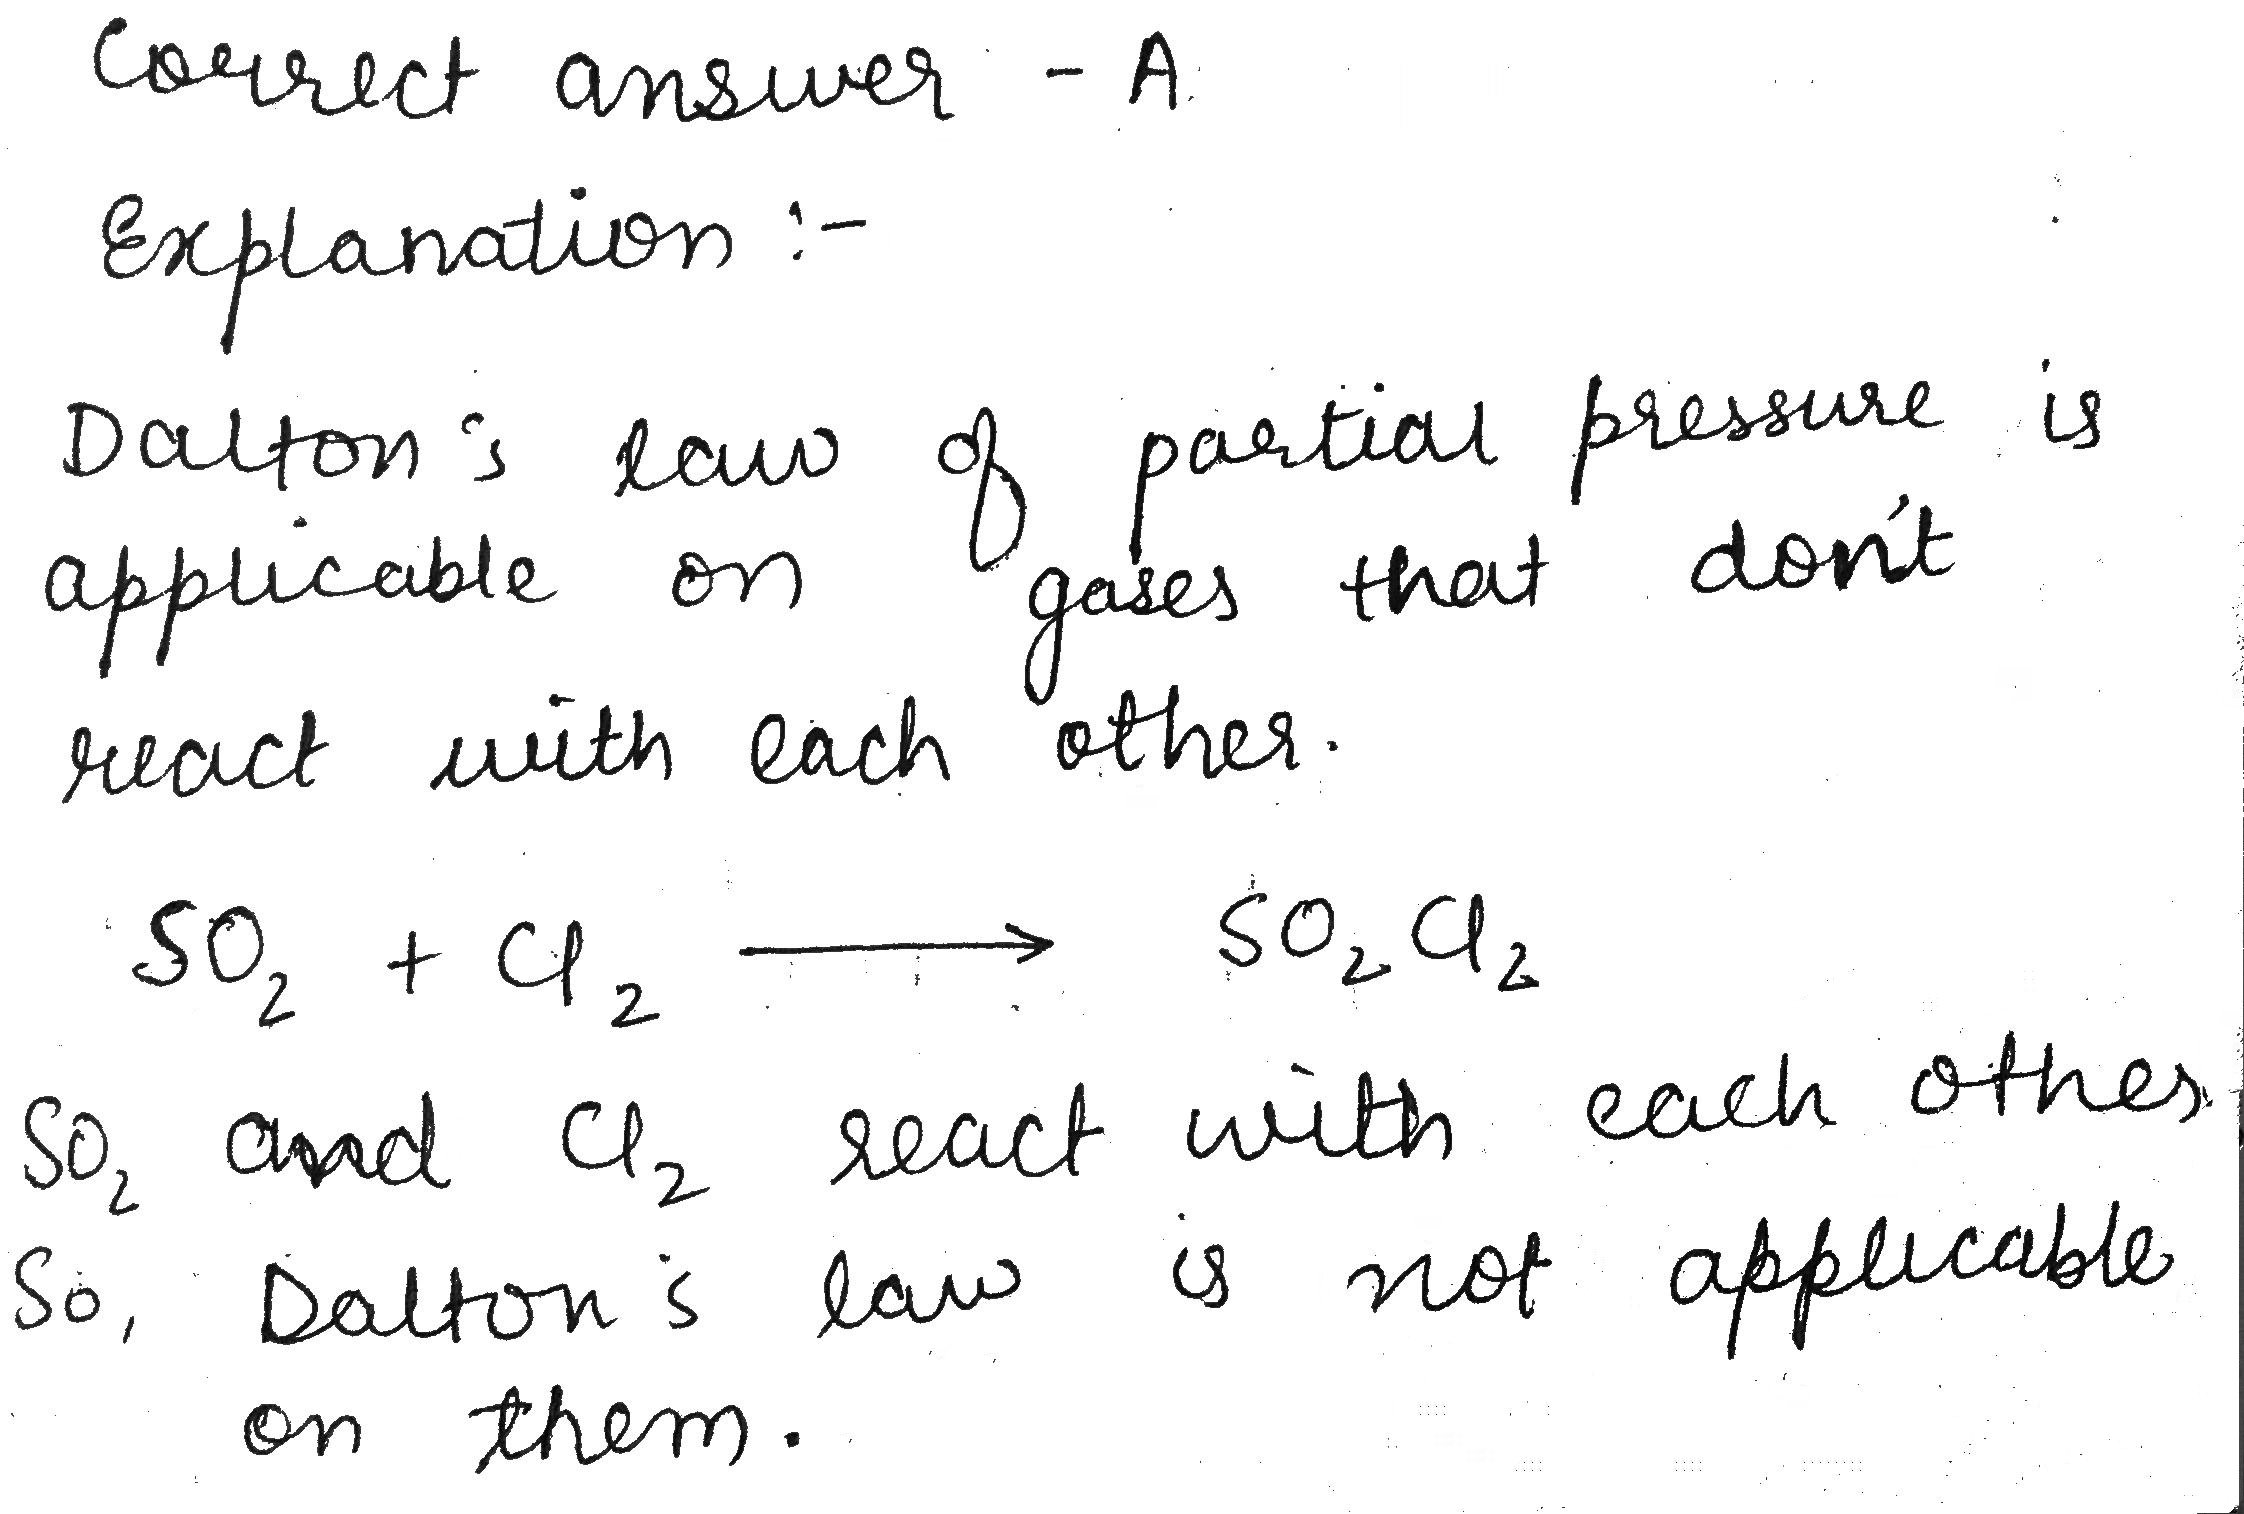 Correct answer - A
Explanation :-
Dalton's law of partial pressure is
applicable on gases that don't
react with each other.
SO₂ + Cl₂ ⟶ SO₂Cl₂
SO₂ and Cl₂ react with each other
So, Dalton's law is not applicable
on them.